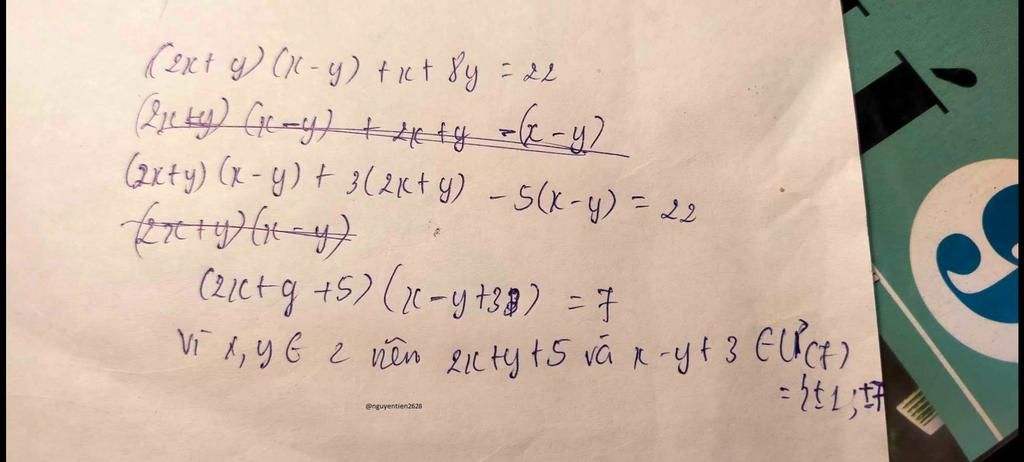 (2x+y)(x-y) +x+8y = 22
(2x+y) (x-y) + 2x+y -(x-y)
(2x+y)(x-y) + 3(2x+y) -5(x-y) = 22
(2x+y)(x-y)
(2x+y+5)(x-y+3) = 7
Vì x,y ∈ z nên 2x+y+5 và x-y+3 ∈ Ư(7)
={±1;±7
@nguyentien2628